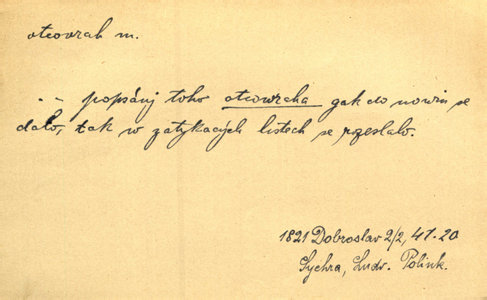 otcovrah m.
.. popsánj toho otcowraha gak do nowin se
dalo, tak w zatykacých listech se rozeslalo.
1821 Dobroslav 2/2, 47.20
Sychra, Ludv. Polink.